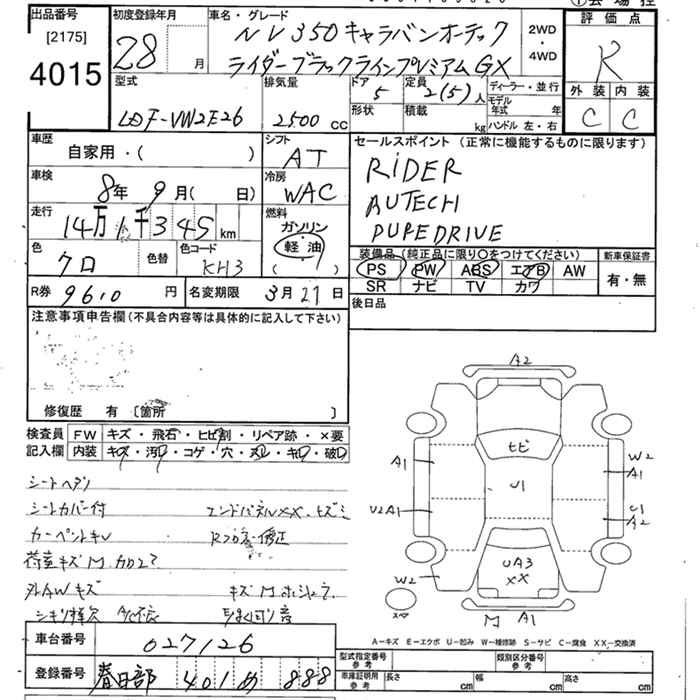 出品番号 初度登録年月 車名・グレード 評価点
[2175] 28 月 NV350キャラバンオーテック 2WD・4WD R
4015 ライダーブラックラインプレミアムGX
型式 排気量 ドア 5 定員 2(5)人 ディーラー・並行 外装 内装
LDF-VW2E26 2500 cc 形状 積載 kg モデル年式 年 C C
ハンドル 左・右
車歴 自家用・( ) シフト AT セールスポイント(正常に機能するものに限ります)
車検 8年 9月( 日) 冷房 WAC RiDER
走行 14万1千345 km 燃料 ガソリン・軽油 ( ) AUTECH
PUREDRIVE
色 クロ 色替 色コード KH3 装備品(純正品に限り○をつけてください) 新車保証書
PS PW ABS エアB AW 有・無
SR ナビ TV カワ
R券 9610 円 名変期限 3月27日 後日品
注意事項申告欄(不具合内容等は具体的に記入して下さい)
修復歴 有 〔箇所 〕
検査員 FW キズ・飛石・ヒビ割・リペア跡・×要
記入欄 内装 キズ・汚レ・コゲ・穴・ヌレ・キレ・破レ
シートヘタリ
シートカバー付 エンドパネルXX、ヒズミ
荷室キズM
外AWキズ
A2
ヒビ
A1 U1 W2 A1
U2 A1 U1 A2
UA3 XX
W2
スペア
M A1
A-キズ E-エクボ U-凹み W-補修跡 S-サビ C-腐食 XX-交換済
車台番号 027126
登録番号 春日部 401 め 888
型式指定番号 参考 類別区分番号 参考
車庫証明用 参考 長さ cm 幅 cm 高さ cm